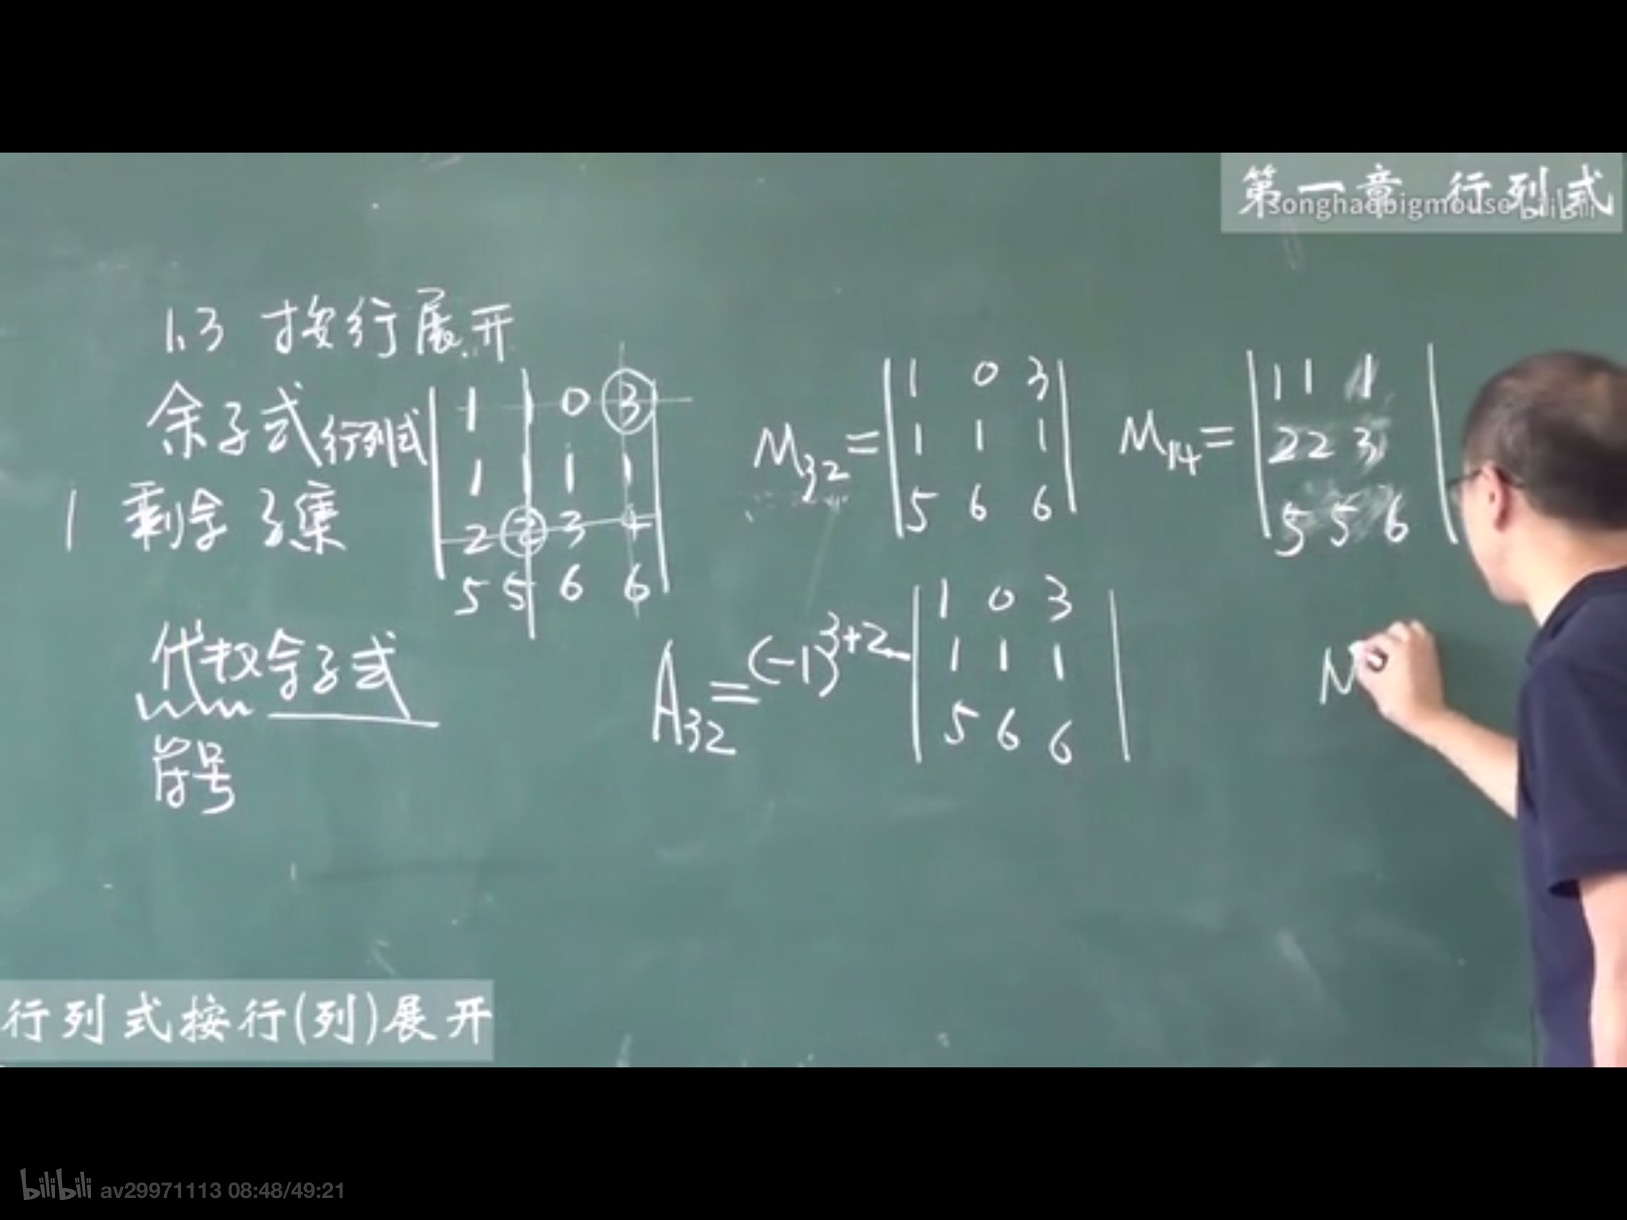 第一章 行列式
songhaobigmouse bilibili
1.3 按行展开
余子式 行列式
剩余子集
代数余子式
符号
1 1 0 3
1 1 1 1
2 2 3 4
5 5 6 6
M32=
1 0 3
1 1 1
5 6 6
M14=
1 1 1
2 2 3
5 5 6
A32=(-1)3+2
1 0 3
1 1 1
5 6 6
M
行列式按行(列)展开
bilibili av29971113 08:48/49:21